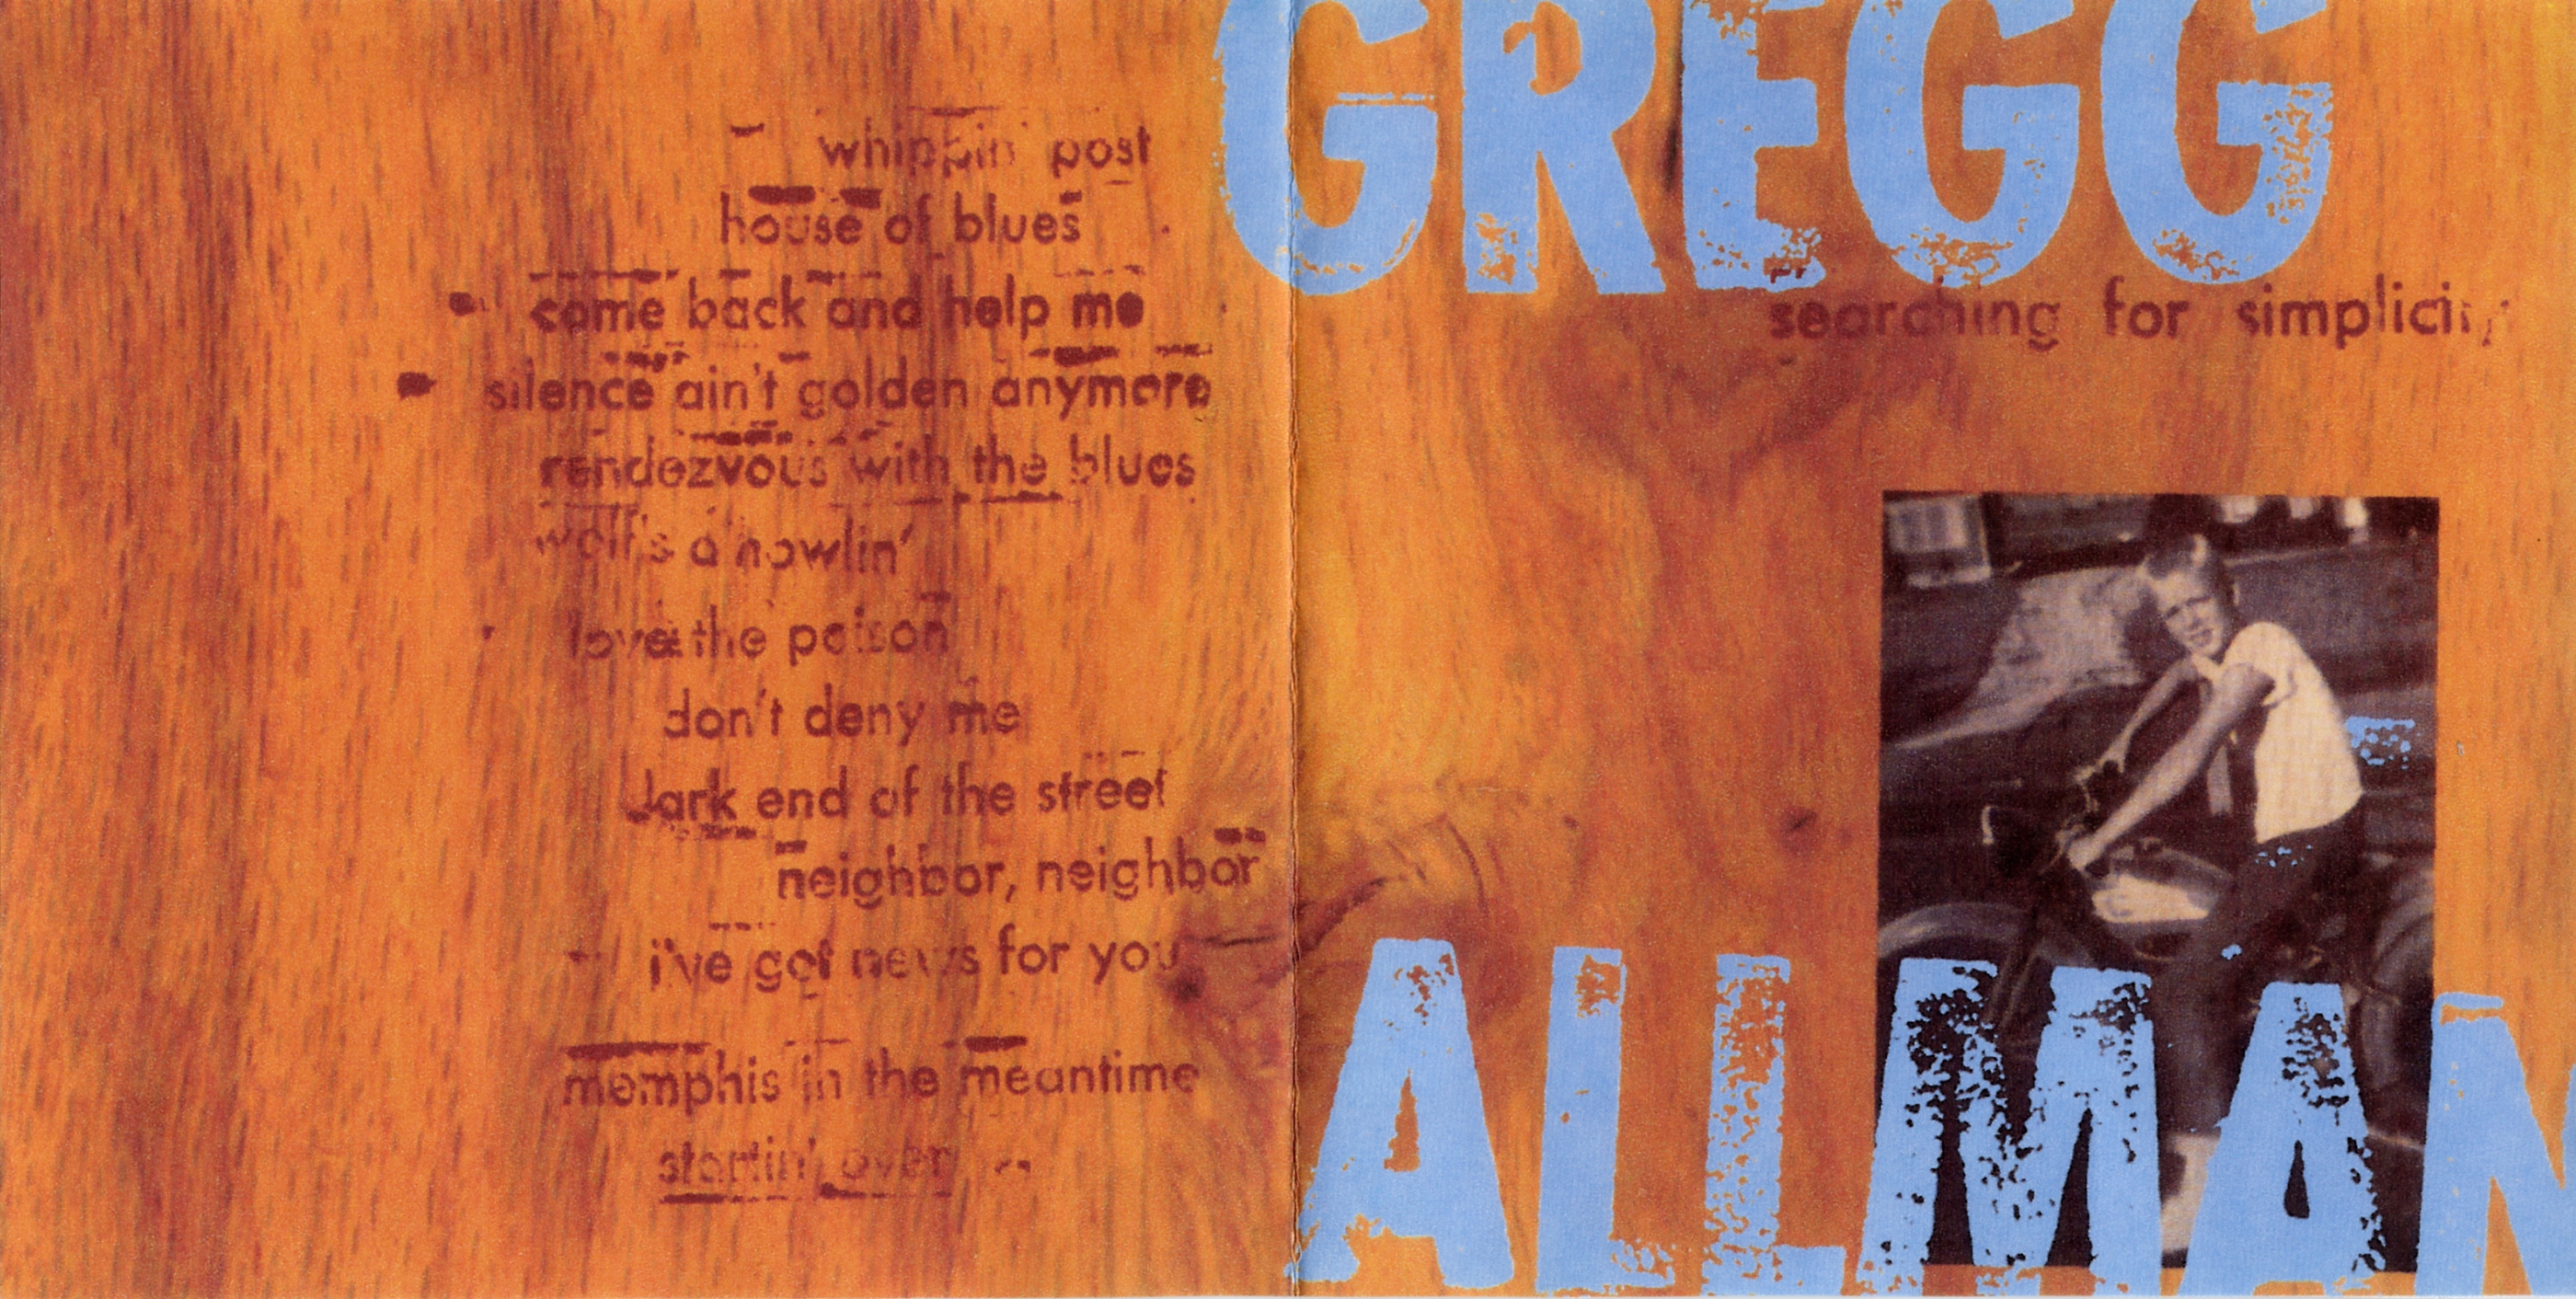 whippin' post
house of blues
come back and help me
silence ain't golden anymore
rendezvous with the blues
wolf's a howlin'
love the poison
don't deny me
dark end of the street
neighbor, neighbor
i've got news for you
memphis in the meantime
startin' over
GREGG
searching for simplicity
ALLMAN